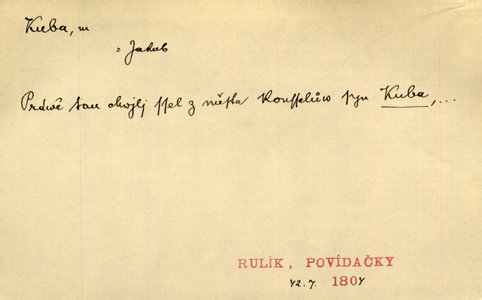 Kuba, m
= Jakub
Práwě tau chwjlj ssel z města Konsselůw syn Kuba,...
RULÍK, POVÍDAČKY
42.7. 1804